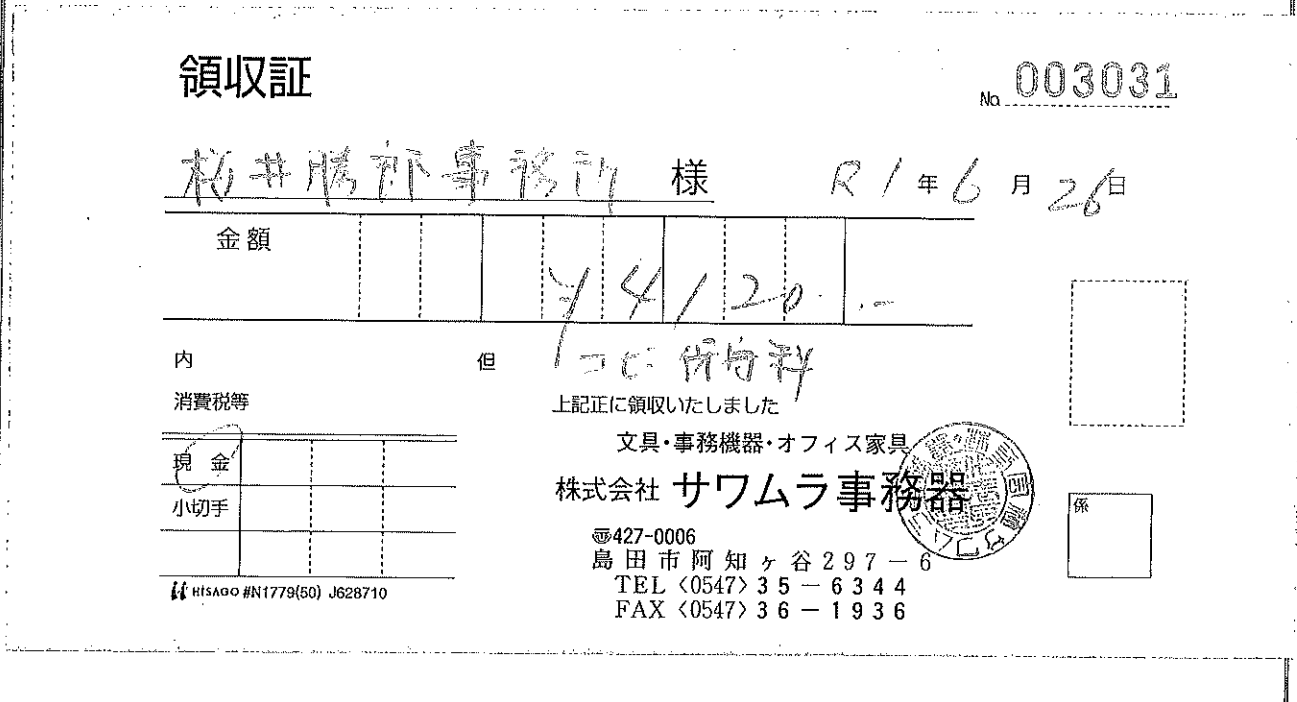 領収証
No. 003031
桜井勝郎事務所 様
R1年6月26日
金額
¥4120.-
内
但 コピー使用料
消費税等
上記正に領収いたしました
現金
文具・事務機器・オフィス家具
小切手
株式会社 サワムラ事務器
〠427-0006
島田市阿知ヶ谷297-6
TEL〈0547〉35-6344
FAX〈0547〉36-1936
係
HISAGO #N1779(50) J628710